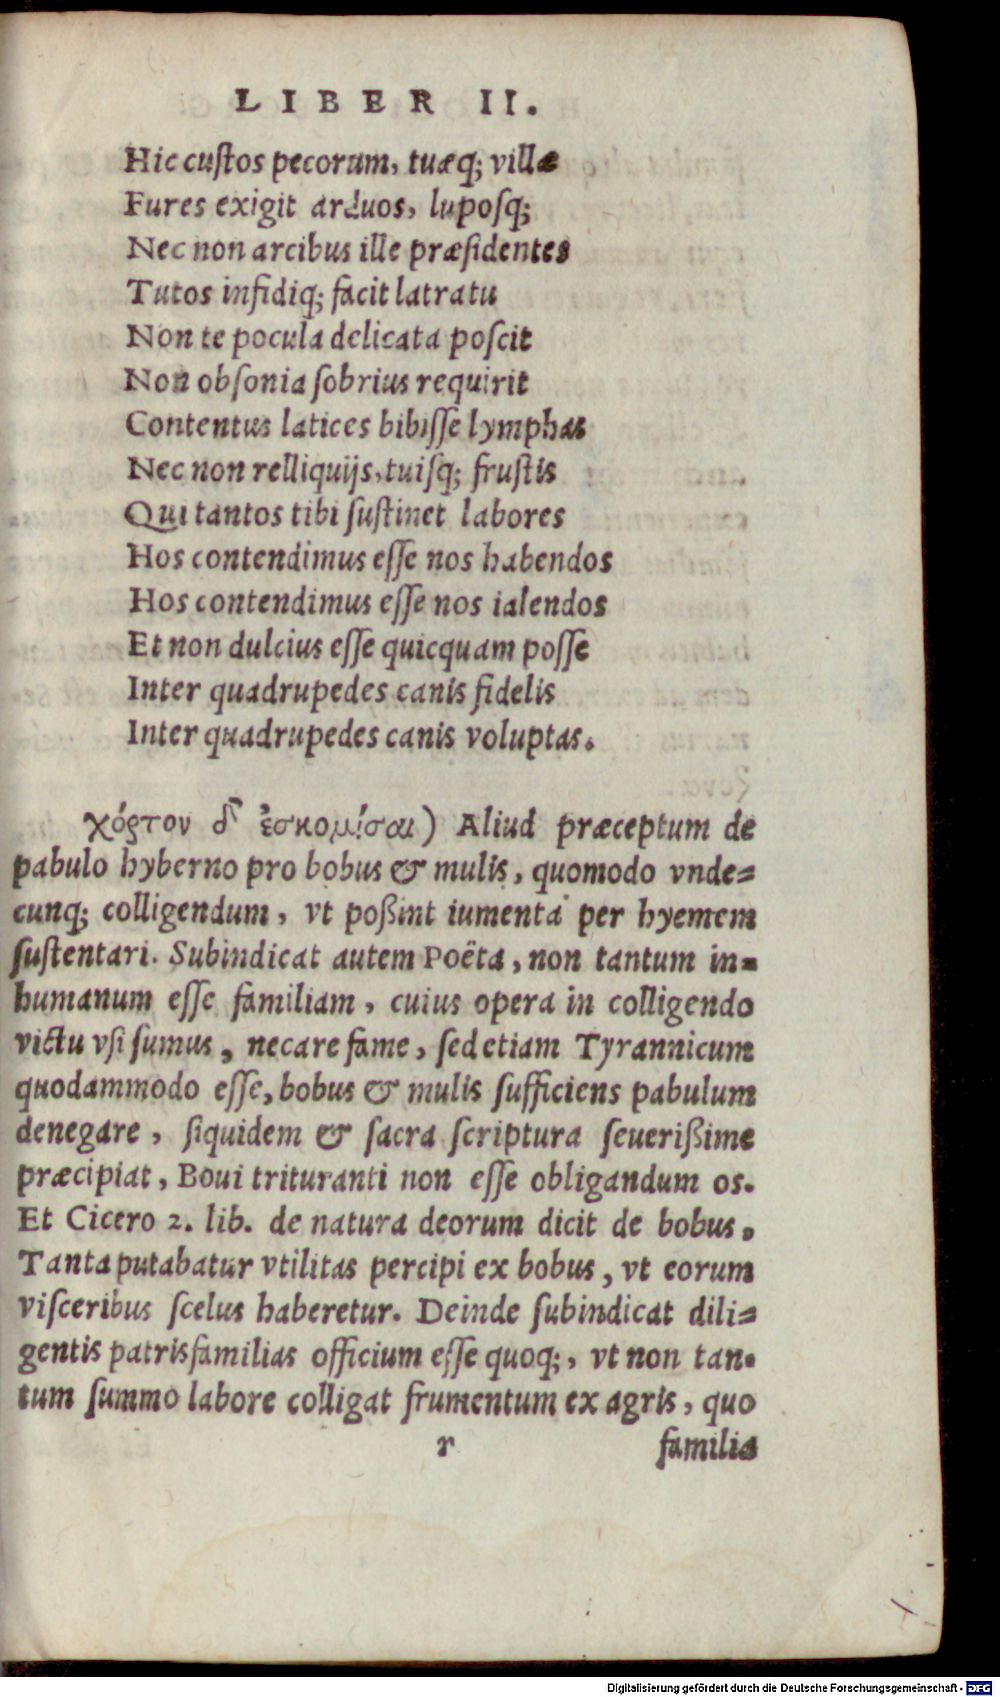 LIBER II.
Hic custos pecorum, tuæq; villæ
Fures exigit arduos, luposq;
Nec non arcibus ille præsidentes
Tutos infidiq; facit latratu
Non te pocula delicata poscit
Non obsonia sobrius requirit
Contentus latices bibisse lymphas
Nec non relliquijs, tuisq; frustis
Qui tantos tibi sustinet labores
Hos contendimus esse nos habendos
Hos contendimus esse nos ialendos
Et non dulcius esse quicquam posse
Inter quadrupedes canis fidelis
Inter quadrupedes canis voluptas.
χόρτον δ' ἐσκομίσαι) Aliud præceptum de
pabulo hyberno pro bobus & mulis, quomodo vnde=
cunq; colligendum, vt poßint iumenta per hyemem
sustentari. Subindicat autem Poëta, non tantum in=
humanum esse familiam, cuius opera in colligendo
victu vsi sumus, necare fame, sed etiam Tyrannicum
quodammodo esse, bobus & mulis sufficiens pabulum
denegare, siquidem & sacra scriptura seuerißime
præcipiat, Boui trituranti non esse obligandum os.
Et Cicero 2. lib. de natura deorum dicit de bobus.
Tanta putabatur vtilitas percipi ex bobus, vt eorum
visceribus scelus haberetur. Deinde subindicat dili=
gentis patrisfamilias officium esse quoq;, vt non tan=
tum summo labore colligat frumentum ex agris, quo
r familia
Digitalisierung gefördert durch die Deutsche Forschungsgemeinschaft - DFG